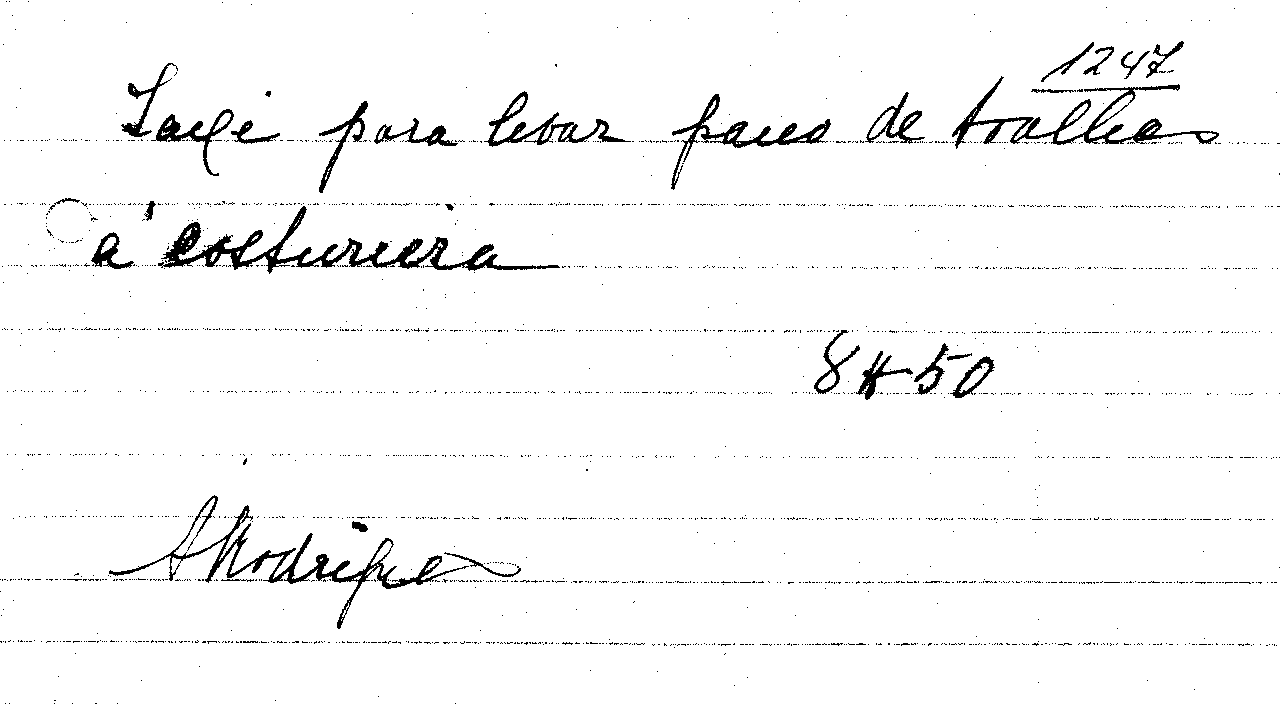 1247
Taxi para levar pano de toalhas
á costureira
8$50
A Rodrigues